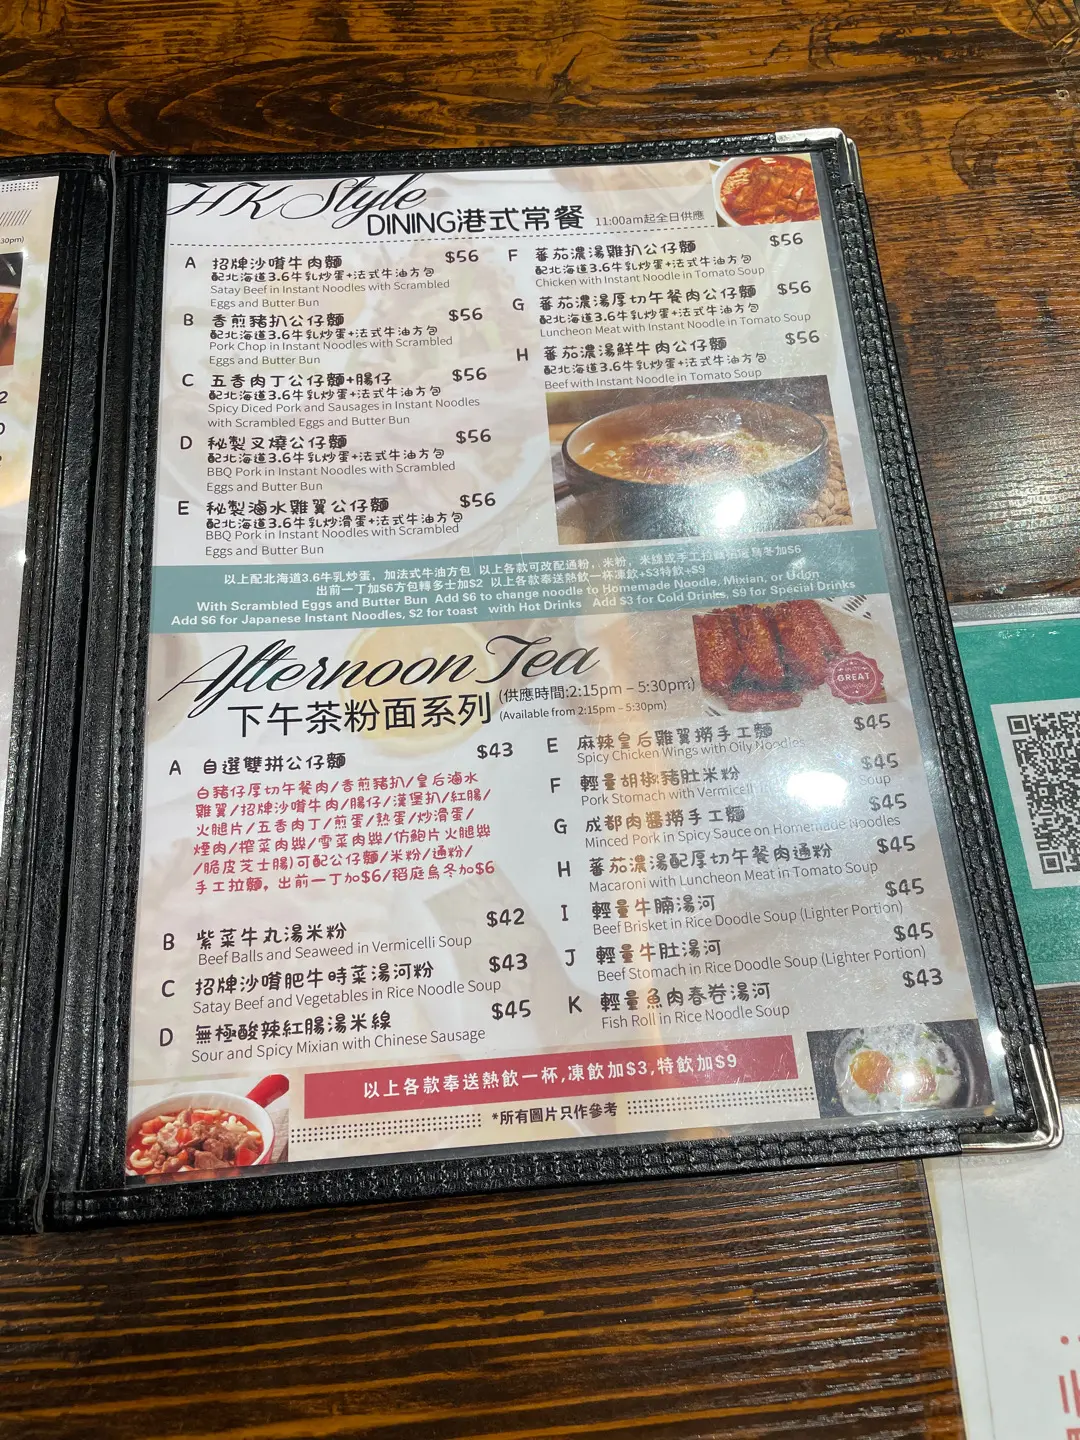 HK Style
DINING港式常餐 11:00am起全日供應
A 招牌沙嗲牛肉麵 $56
配北海道3.6牛乳炒蛋+法式牛油方包
Satay Beef in Instant Noodles with Scrambled
Eggs and Butter Bun
B 香煎豬扒公仔麵 $56
配北海道3.6牛乳炒蛋+法式牛油方包
Pork Chop in Instant Noodles with Scrambled
Eggs and Butter Bun
C 五香肉丁公仔麵+腸仔 $56
配北海道3.6牛乳炒蛋+法式牛油方包
Spicy Diced Pork and Sausages in Instant Noodles
with Scrambled Eggs and Butter Bun
D 秘製叉燒公仔麵 $56
配北海道3.6牛乳炒蛋+法式牛油方包
BBQ Pork in Instant Noodles with Scrambled
Eggs and Butter Bun
E 秘製滷水雞翼公仔麵 $56
配北海道3.6牛乳炒滑蛋+法式牛油方包
BBQ Pork in Instant Noodles with Scrambled
Eggs and Butter Bun
F 蕃茄濃湯雞扒公仔麵 $56
配北海道3.6牛乳炒蛋+法式牛油方包
Chicken with Instant Noodle in Tomato Soup
G 蕃茄濃湯厚切午餐肉公仔麵 $56
配北海道3.6牛乳炒蛋+法式牛油方包
Luncheon Meat with Instant Noodle in Tomato Soup
H 蕃茄濃湯鮮牛肉公仔麵 $56
配北海道3.6牛乳炒蛋+法式牛油方包
Beef with Instant Noodle in Tomato Soup
以上配北海道3.6牛乳炒蛋，加法式牛油方包 以上各款可改配通粉，米粉，米線或手工拉麵 烏冬加$6
出前一丁加$6方包轉多士加$2 以上各款奉送熱飲一杯凍飲+$3特飲+$9
With Scrambled Eggs and Butter Bun Add $6 to change noodle to Homemade Noodle, Mixian, or Udon
Add $6 for Japanese Instant Noodles, $2 for toast with Hot Drinks Add $3 for Cold Drinks, $9 for Special Drinks
Afternoon Tea
下午茶粉面系列 (供應時間:2:15pm – 5:30pm)
(Available from 2:15pm – 5:30pm)
GREAT
A 自選雙拼公仔麵 $43
白豬仔厚切午餐肉/香煎豬扒/皇后滷水
雞翼/招牌沙嗲牛肉/腸仔/漢堡扒/紅腸/
火腿片/五香肉丁/煎蛋/熱蛋/炒滑蛋/
煙肉/榨菜肉絲/雪菜肉絲/仿鮑片火腿絲
/脆皮芝士腸)可配公仔麵/米粉/通粉/
手工拉麵，出前一丁加$6/稻庭烏冬加$6
B 紫菜牛丸湯米粉 $42
Beef Balls and Seaweed in Vermicelli Soup
C 招牌沙嗲肥牛時菜湯河粉 $43
Satay Beef and Vegetables in Rice Noodle Soup
D 無極酸辣紅腸湯米線 $45
Sour and Spicy Mixian with Chinese Sausage
E 麻辣皇后雞翼撈手工麵 $45
Spicy Chicken Wings with Oily Noodles
F 輕量胡椒豬肚米粉 $45
Pork Stomach with Vermicelli Soup
G 成都肉醬撈手工麵 $45
Minced Pork in Spicy Sauce on Homemade Noodles
H 蕃茄濃湯配厚切午餐肉通粉 $45
Macaroni with Luncheon Meat in Tomato Soup
I 輕量牛腩湯河 $45
Beef Brisket in Rice Doodle Soup (Lighter Portion)
J 輕量牛肚湯河 $45
Beef Stomach in Rice Doodle Soup (Lighter Portion)
K 輕量魚肉春卷湯河 $43
Fish Roll in Rice Noodle Soup
以上各款奉送熱飲一杯,凍飲加$3,特飲加$9
*所有圖片只作參考